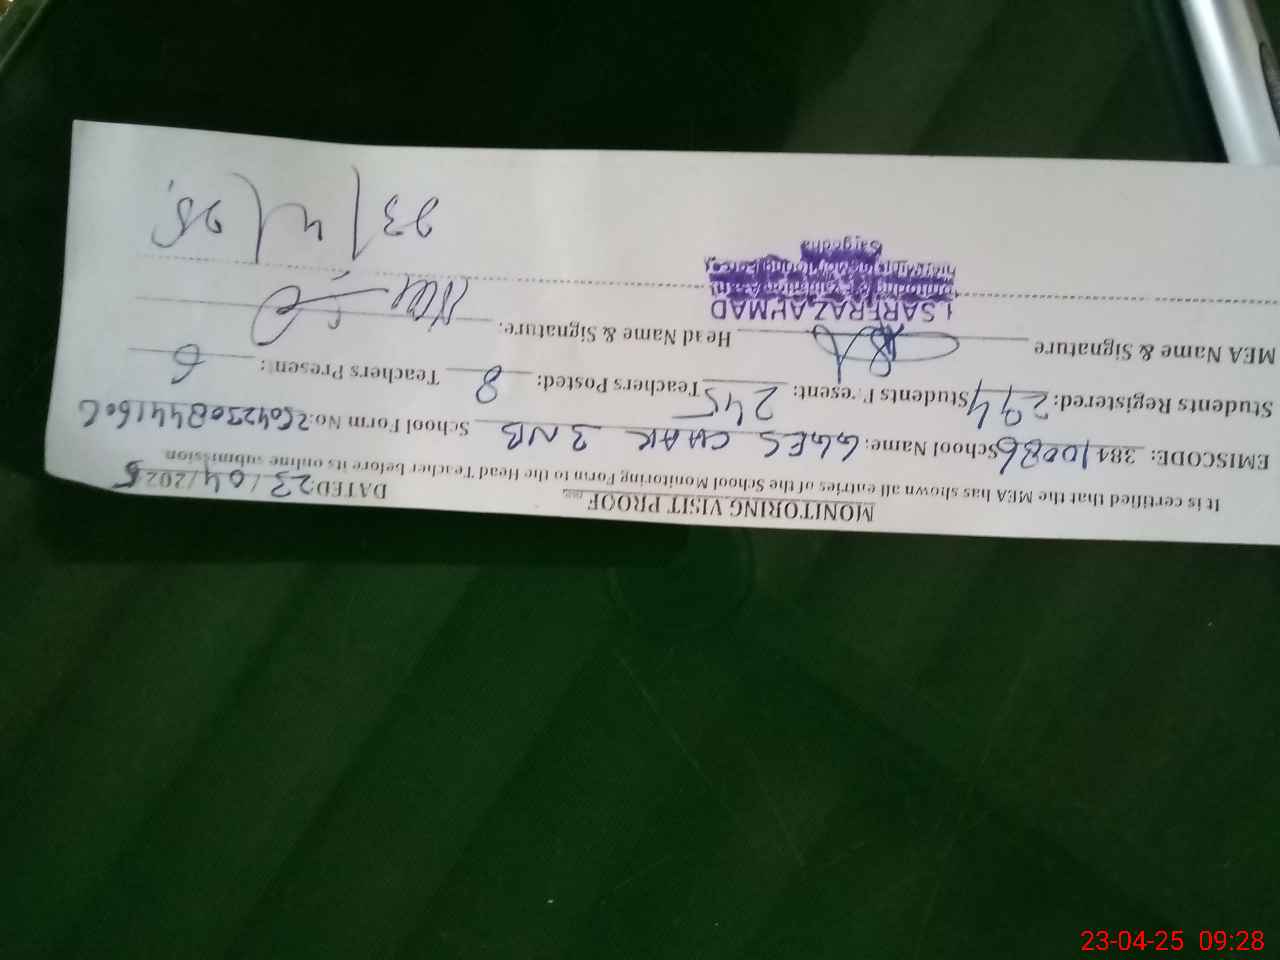 MONITORING VISIT PROOF
DATED: 23/04/2025
It is certified that the MEA has shown all entries of the School Monitoring Form to the Head Teacher before its online submission
EMISCODE: 38410086 School Name: GGES CHAK 3 NB School Form No:
Students Registered: 294 Students Present: 245 Teachers Posted: 8 Teachers Present: 6
MEA Name & Signature Head Name & Signature:
SARFRAZ AHMAD
Sargodha
23/4/25
23-04-25 09:28